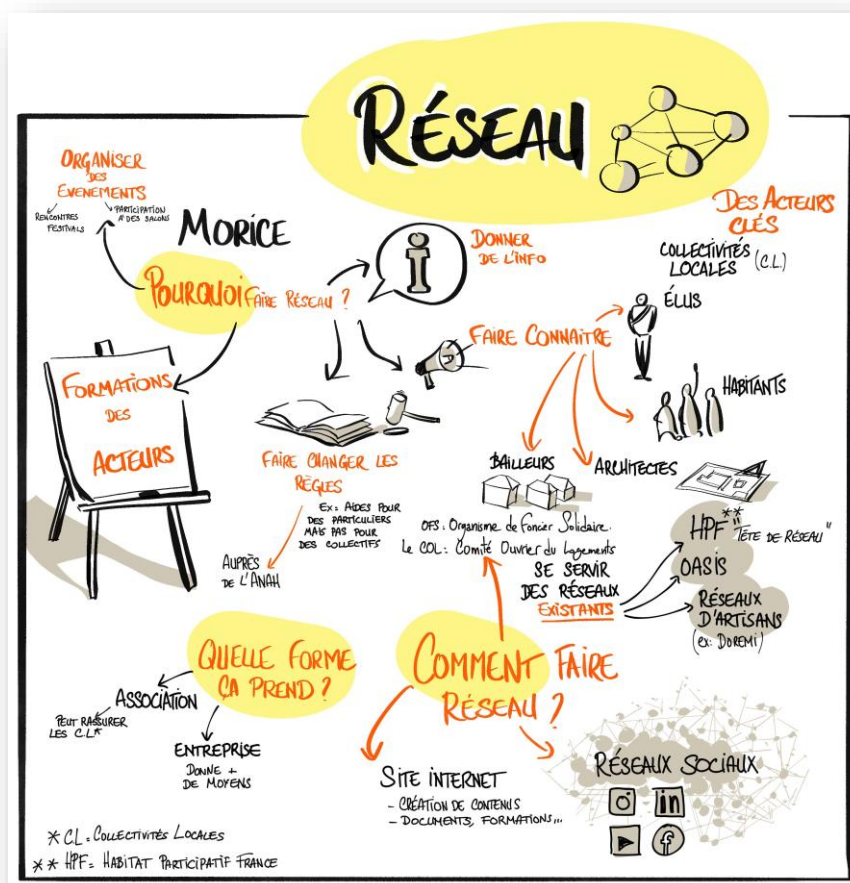 RÉSEAU
ORGANISER
DES
EVENEMENTS
RENCONTRES
FESTIVALS
PARTICIPATION
A DES SALONS
MORICE
POURQUOI FAIRE RÉSEAU ?
i
DONNER
DE L'INFO
DES ACTEURS
CLÉS
COLLECTIVITÉS
LOCALES (C.L.)
ÉLUS
FAIRE CONNAITRE
HABITANTS
FORMATIONS
DES
ACTEURS
FAIRE CHANGER LES
RÈGLES
EX: AIDES POUR
DES PARTICULIERS
MAIS PAS POUR
DES COLLECTIFS
AUPRÈS
DE L'ANAH
BAILLEURS
ARCHITECTES
OFS: Organisme de Foncier Solidaire.
Le COL: Comité Ouvrier du Logements
SE SERVIR
DES RÉSEAUX
EXISTANTS
HPF** "TÊTE DE RÉSEAU"
OASIS
RÉSEAUX
D'ARTISANS
(ex: DOREMI)
QUELLE FORME
ÇA PREND ?
ASSOCIATION
PEUT RASSURER
LES C.L*
ENTREPRISE
DONNE +
DE MOYENS
COMMENT FAIRE
RÉSEAU ?
SITE INTERNET
- CRÉATION DE CONTENUS
- DOCUMENTS, FORMATIONS...
RÉSEAUX SOCIAUX
in
f
* CL = COLLECTIVITÉS LOCALES
** HPF = HABITAT PARTICIPATIF FRANCE